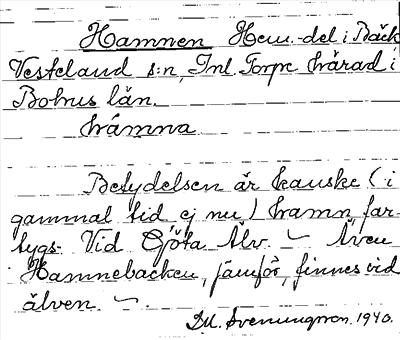 Hamnen Hem.-del i Bäck
Vesteland s:n, Inl. Torpe härad i
Bohus län.
hámna
Betydelsen är kanske (i
gammal tid ej nu) hamn, far-
tygs- Vid Göta Älv. — Även
Hamnebacken, jämför, finnes vid
älven. —.
D.U. Svenungson. 1940.